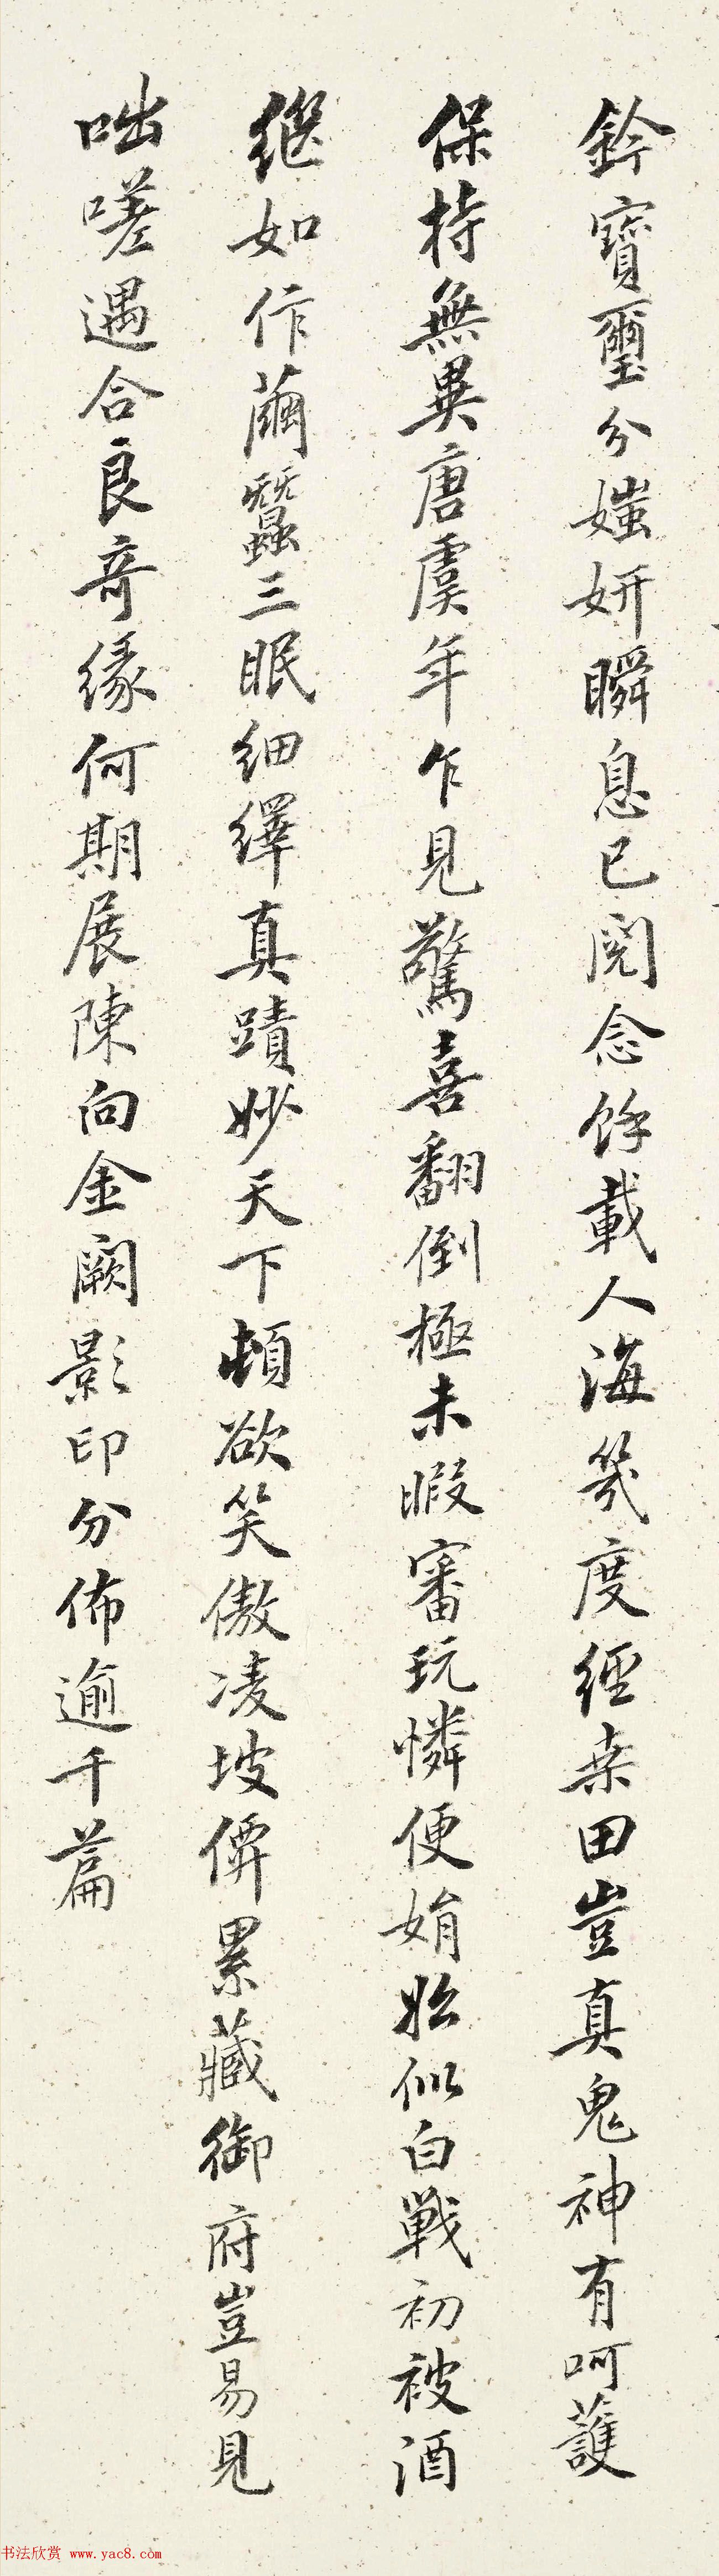 鈐寶璽分媸妍瞬息已閱念餘載人海幾度經桑田豈真鬼神有呵護
保持無異唐虞年乍見驚喜翻倒極未暇審玩憐便娟始似白戰初被酒
繼如作繭蠶三眠細繹真蹟妙天下頓欲笑傲凌坡儕累藏御府豈易見
咄嗟遇合良奇緣何期展陳向金闕影印分佈逾千篇
书法欣赏 www.yac8.com